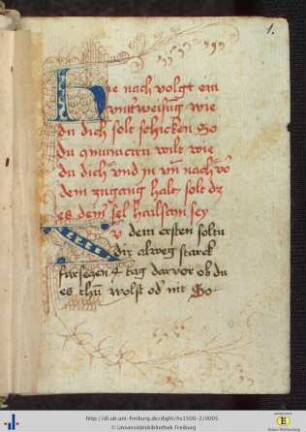 1.
Hie nach volgt ein
vnttweisung wie
du dich solt schicken So
du comunicirn wilt wie
du dich vnd in vn̄ nach vō
dem zugang halt solt dz
es dem sel hailsam sey
Zv dem ersten soltu
dir alweg starck
fursetzen 4 tag darvor ob du
es thū wolst od nit So
http://dl.ub.uni-freiburg.de/diglit/hs1500-2/0005
© Universitätsbibliothek Freiburg